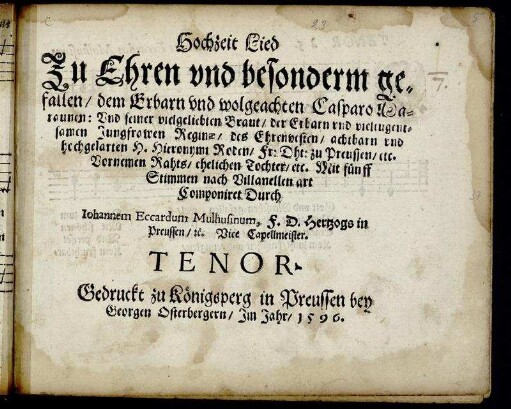 23
Hochzeit Lied
Zu Ehren vnd besonderm ge-
fallen/ dem Erbarn vnd wolgeachten Casparo
raunen: Vnd seiner vielgeliebten Braut/ der Erbarn vnd vieltugent-
samen Jungfrowen Reginæ/ des Ehrenvesten/ achtbarn vnd
hochgelarten H. Hieronymi Roten/ Fr: Dht: zu Preussen/ etc.
Vornemen Rahts/ ehelichen Tochter/ etc. Mit fünff
Stimmen nach Villanellen art
Componiret Durch
Iohannem Eccardum Mulhusinum, F. D. Hertzogs in
Preussen/ ꝛc. Vice Capellmeister.
TENOR.
Gedruckt zu Königsperg in Preussen bey
Georgen Osterbergern/ Im Jahr/ 1596.